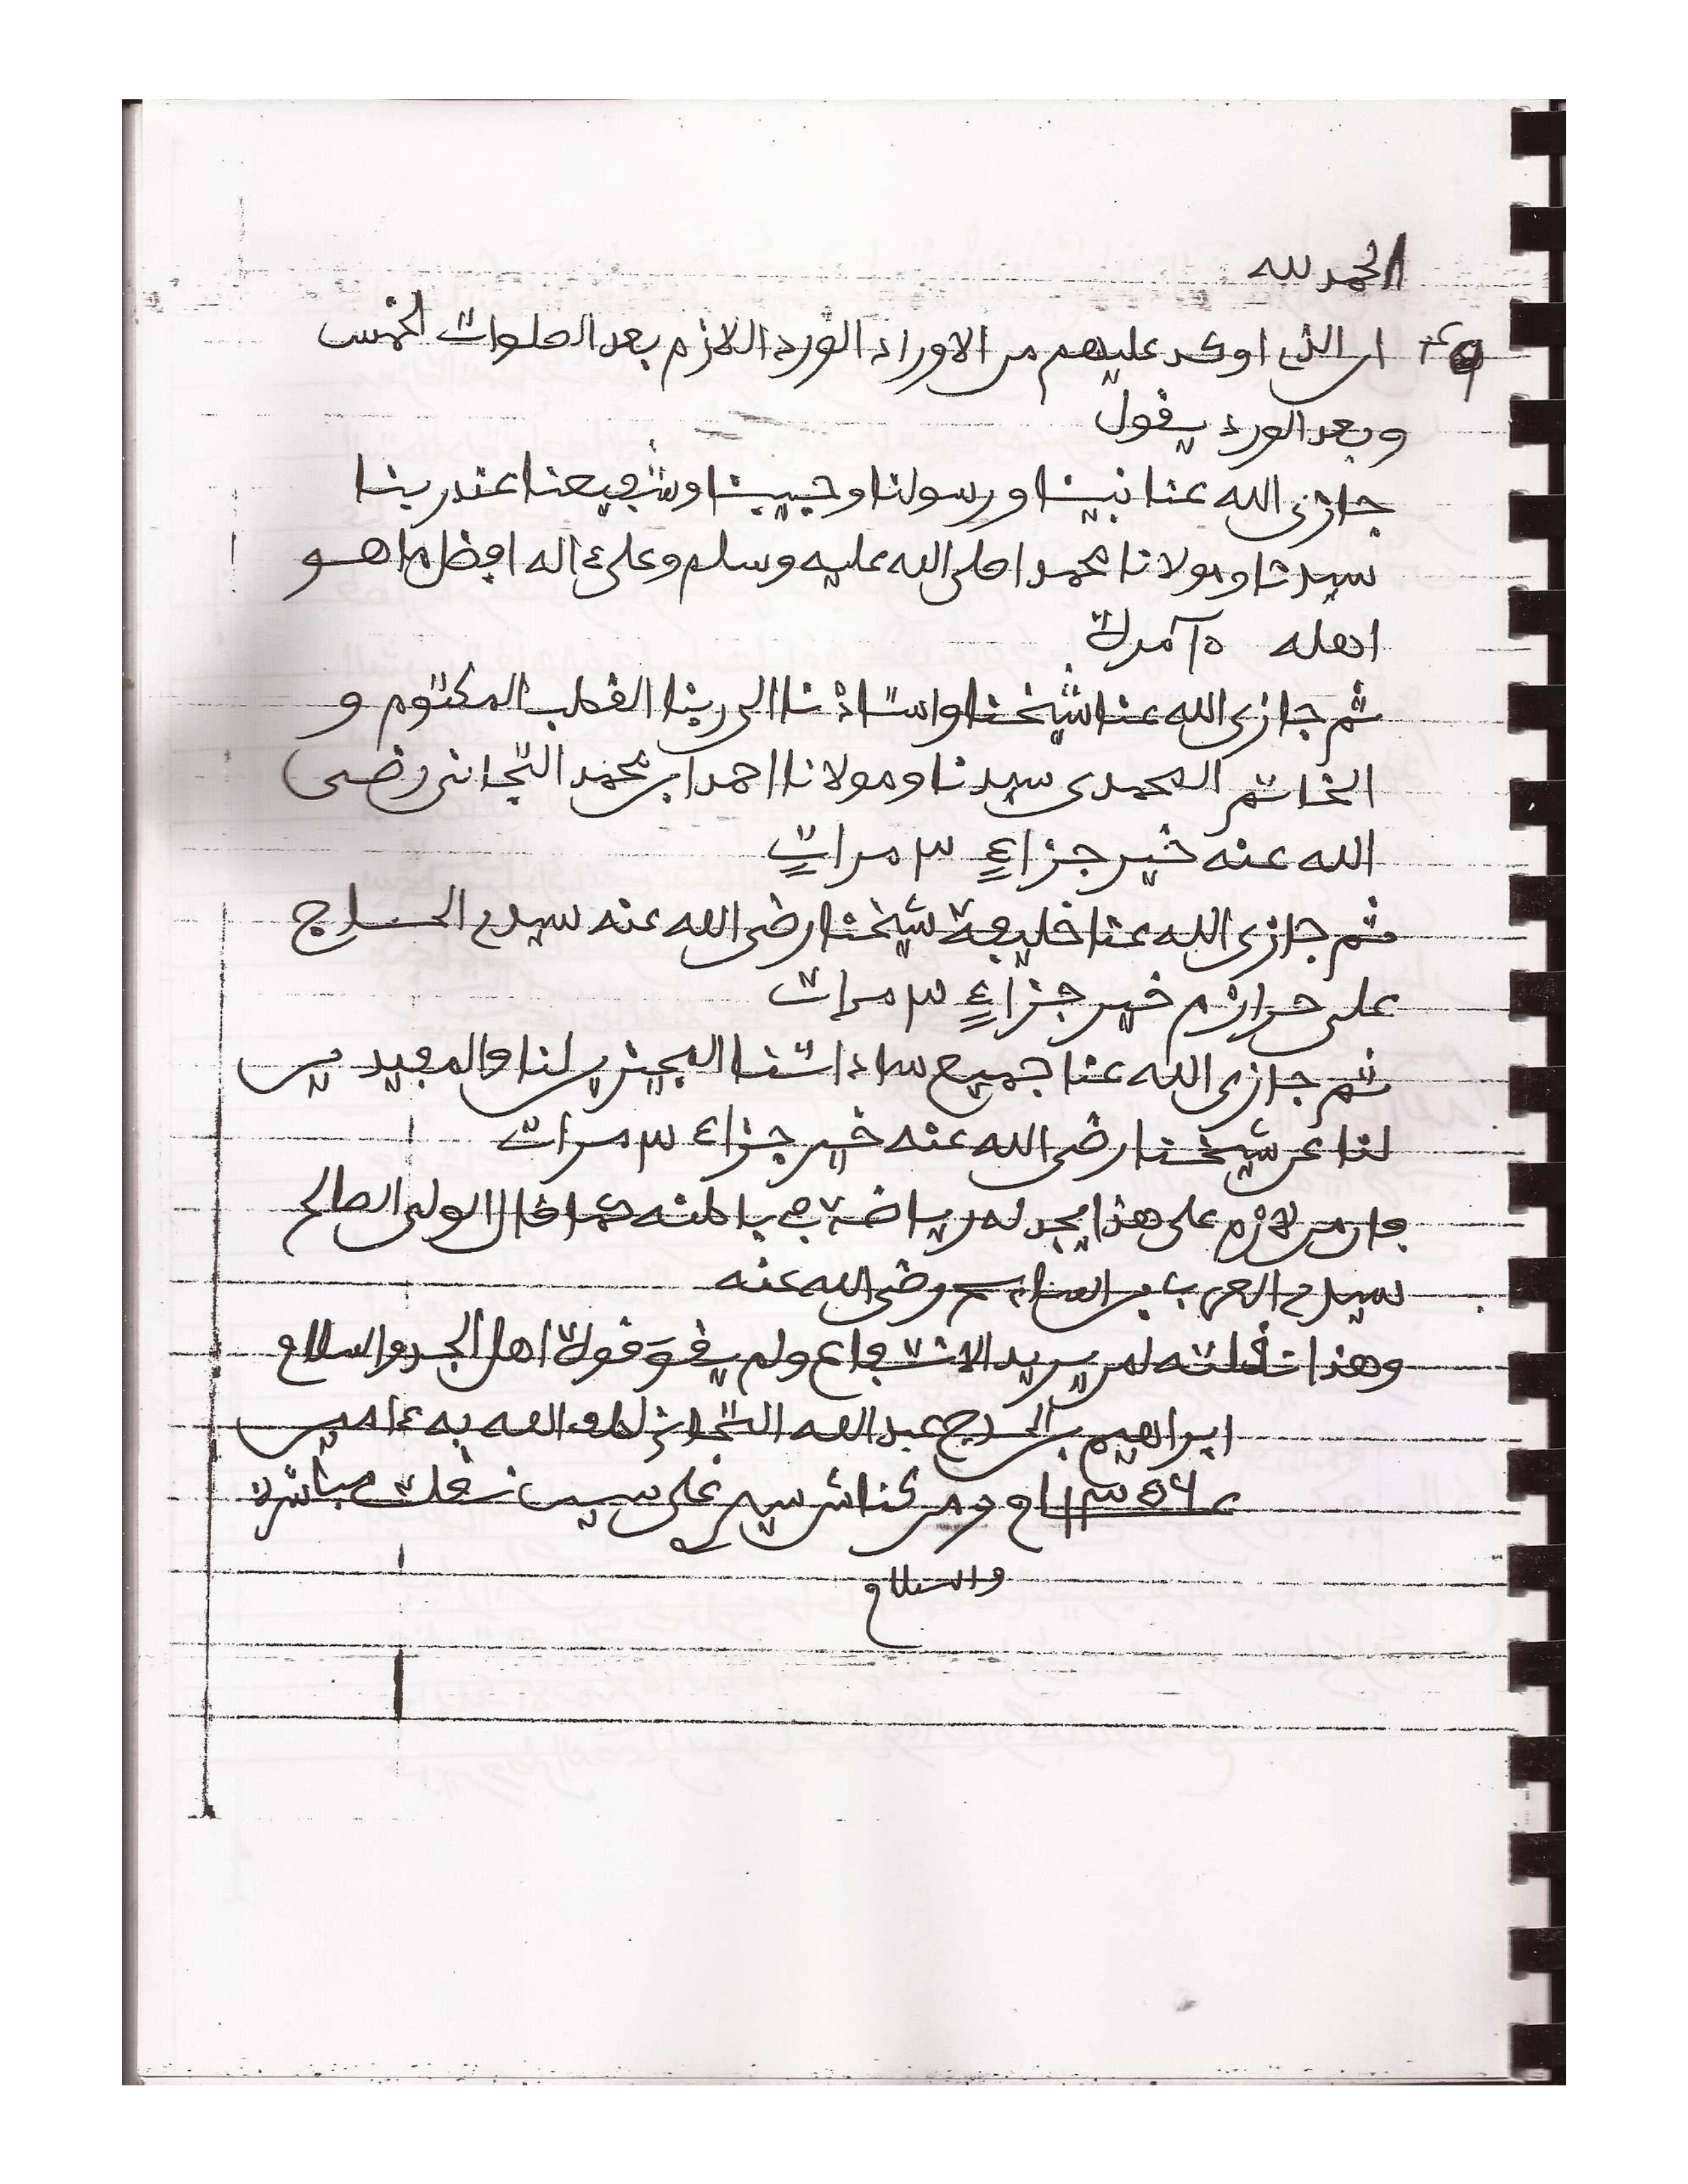 الحمد لله
ان الذى اوكد عليهم من الاوراد الورد اللازم بعد الصلوات الخمس
وبعد الورد يقول
جازى الله عنا نبينا ورسولنا وحبيبنا وشفيعنا عند ربنا
سيدنا ومولانا محمدا صلى الله عليه وسلم وعلى ءاله افضل ما هو
اهله
ثم جازى الله عنا شيخنا واستاذنا الى ربنا القطب المكتوم و
الخاتم المحمدى سيدنا ومولانا احمد ابن محمد التجانى رضى
الله عنه خير جزاءٍ ٣ مراتٍ
ثم جازى الله عنا خليفة شيخنا رضى الله عنه سيدى الحاج
على حرازم خير جزاءٍ ٣ مرات
ثم جازى الله عنا جميع ساداتنا المجيزين لنا والمفيدين
لنا عن شيخنا رضى الله عنه خير جزاء ٣ مرات
فان من لازم على هذا يجد له رياضة فى باطنه كما قال الولى الصالح
سيدى العربى بن السايح رضى الله عنه
وهذا قلته لمن يريد الانتفاع ولم يقو قوة اهل الجد والسلام
ابراهيم بن الحاج عبد الله التجانى لطف الله به ءامين
ومن كناش سيدى على سيس نقلت مباشرة
والسلام